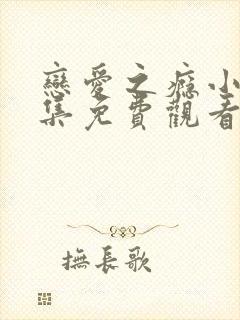 戀愛之癮小
集免費觀看
撫長歌